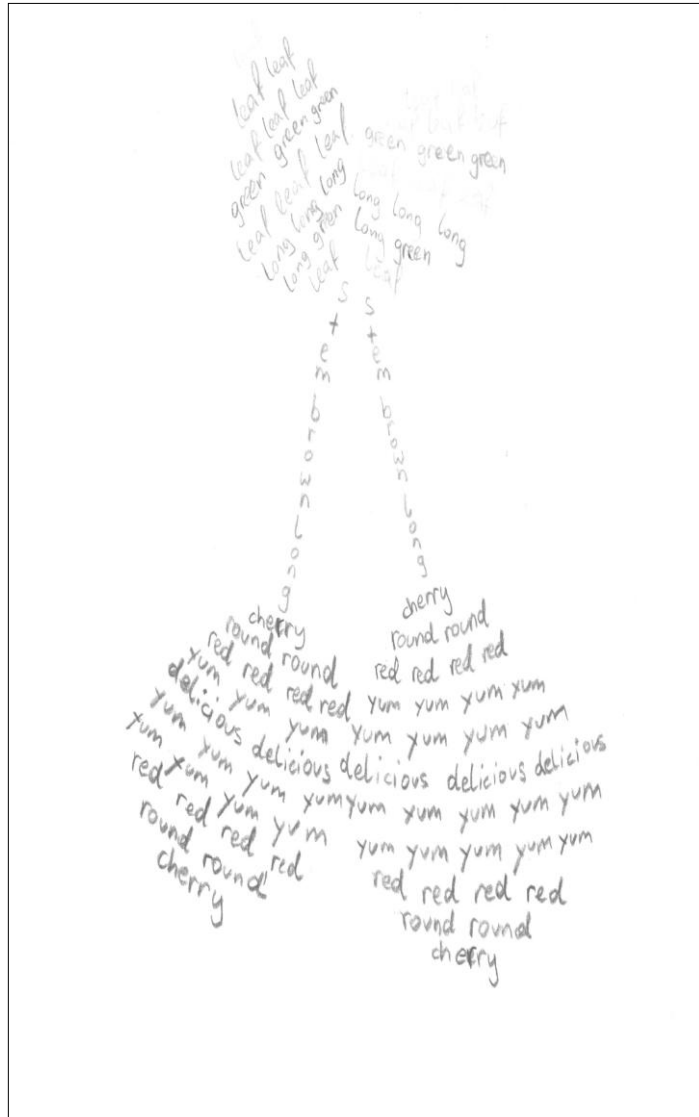 leaf leaf
leaf leaf leaf
green green green
leaf leaf leaf
long long long
long green
leaf
green green green
leaf leaf leaf
long long long
long green
leaf
stem brown long
stem brown long
cherry
round round
red red red red
yum yum yum
delicious delicious
yum yum yum yum
yum yum yum yum
red red red red
round round
cherry
cherry
round round
red red red red
yum yum yum yum
yum yum yum yum
delicious delicious delicious
yum yum yum yum yum
yum yum yum yum yum
red red red red
round round
cherry